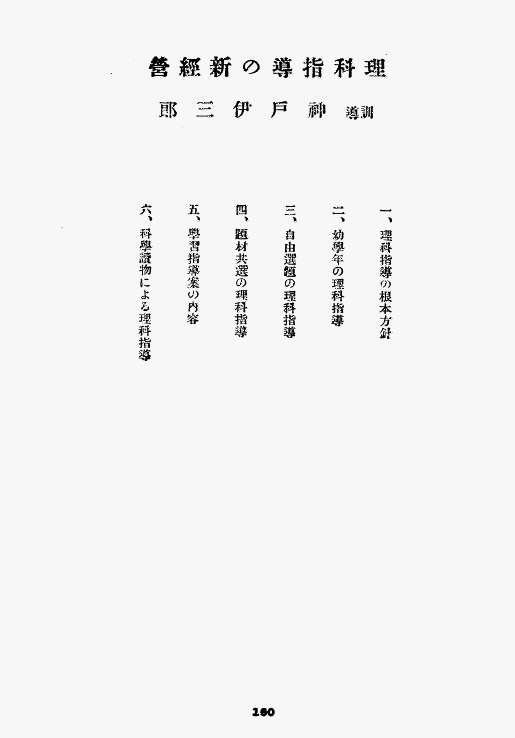 理科指導の新經營
訓導 神戸伊三郎
一、理科指導の根本方針
二、幼學年の理科指導
三、自由選題の理科指導
四、題材共選の理科指導
五、學習指導案の內容
六、科學讀物による理科指導
160